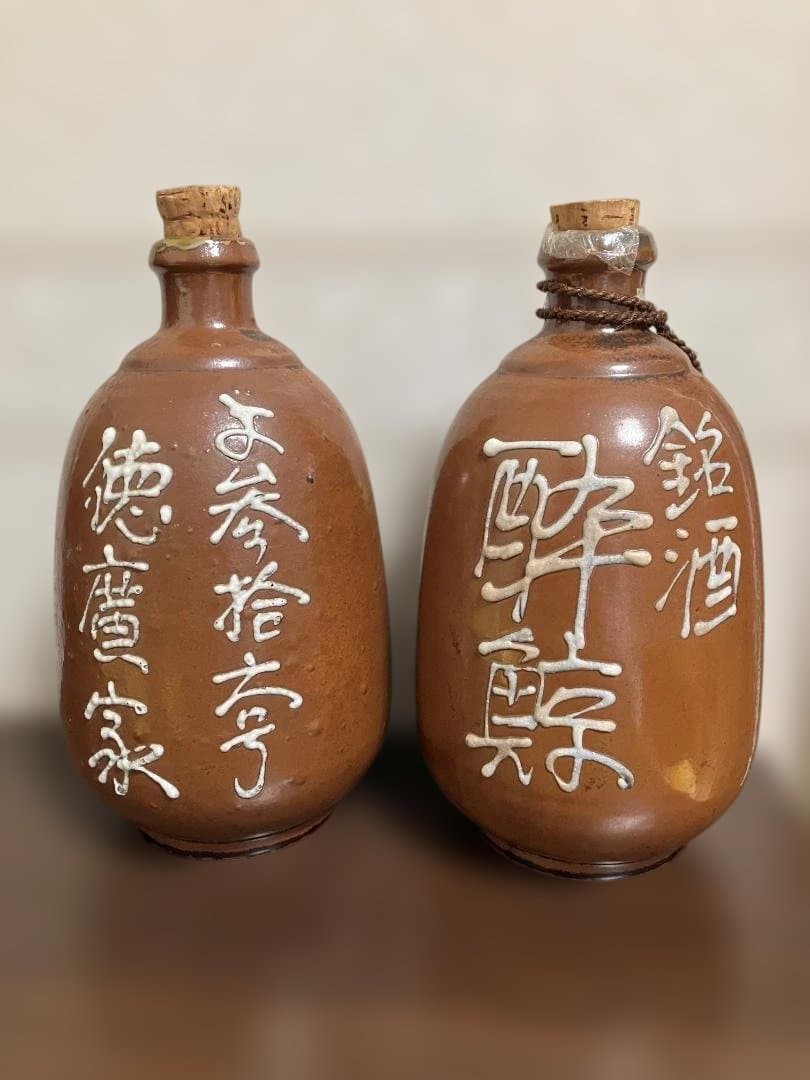 銘酒
酔鯨
参拾六号
徳廣家